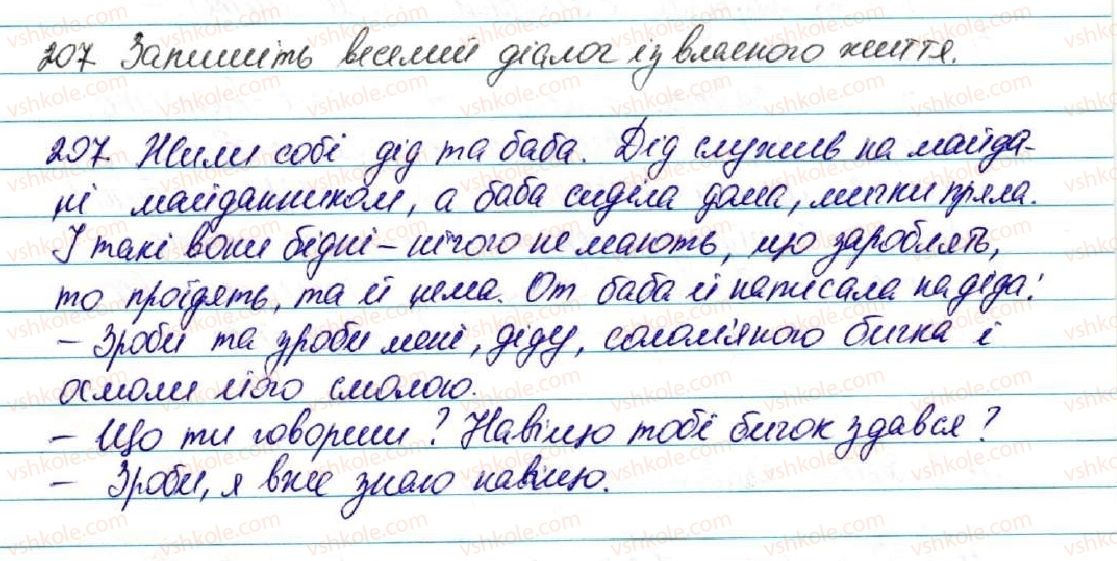 207. Запишіть веселий діалог із власного життя.
207. Жили собі дід та баба. Дід служив на майда-
ні майданником, а баба сиділа дома, мички пряла.
І такі вони бідні – нічого не мають, що зароблять,
то проїдять, та й нема. От баба й написала на діда:
– Зроби та зроби мені, діду, солом'яного бичка і
осмоли його смолою.
– Що ти говориш? Навіщо тобі бичок здався?
– Зроби, я вже знаю навіщо.
vshkole.com